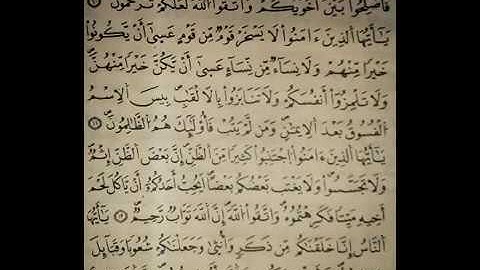 فَأَصْلِحُوا بَيْنَ أَخَوَيْكُمْ وَاتَّقُوا اللَّهَ لَعَلَّكُمْ تُرْحَمُونَ
يَٰأَيُّهَا الذِينَ ءَامَنُوا لَا يَسْخَرْ قَوْمٌ مِّن قَوْمٍ عَسَىٰ أَنْ يَّكُونُوا
خَيْرًا مِّنْهُمْ وَلَا نِسَآءٌ مِّن نِّسَآءٍ عَسَىٰ أَنْ يَّكُنَّ خَيْرًا مِّنْهُنَّ
وَلَا تَلْمِزُوا أَنفُسَكُمْ وَلَا تَنَابَزُوا بِالَالْقَٰبِ بِيسَ الِاسْمُ
الْفُسُوقُ بَعْدَ الِايمَٰنِ وَمَن لَّمْ يَتُبْ فَأُوْلَٰئِكَ هُمُ الظَّٰلِمُونَ ١١
يَٰأَيُّهَا الذِينَ ءَامَنُوا اجْتَنِبُوا كَثِيرًا مِّنَ الظَّنِّ إِنَّ بَعْضَ الظَّنِّ إِثْمٌ
وَلَا تَجَسَّسُوا وَلَا يَغْتَب بَّعْضُكُم بَعْضًا أَيُحِبُّ أَحَدُكُمْ أَنْ يَّاكُلَ لَحْمَ
أَخِيهِ مَيِّتًا فَكَرِهْتُمُوهُ وَاتَّقُوا اللَّهَ إِنَّ اللَّهَ تَوَّابٌ رَّحِيمٌ ١٢ يَٰأَيُّهَا
النَّاسُ إِنَّا خَلَقْنَٰكُم مِّن ذَكَرٍ وَأُنثَىٰ وَجَعَلْنَٰكُمْ شُعُوبًا وَقَبَآئِلَ